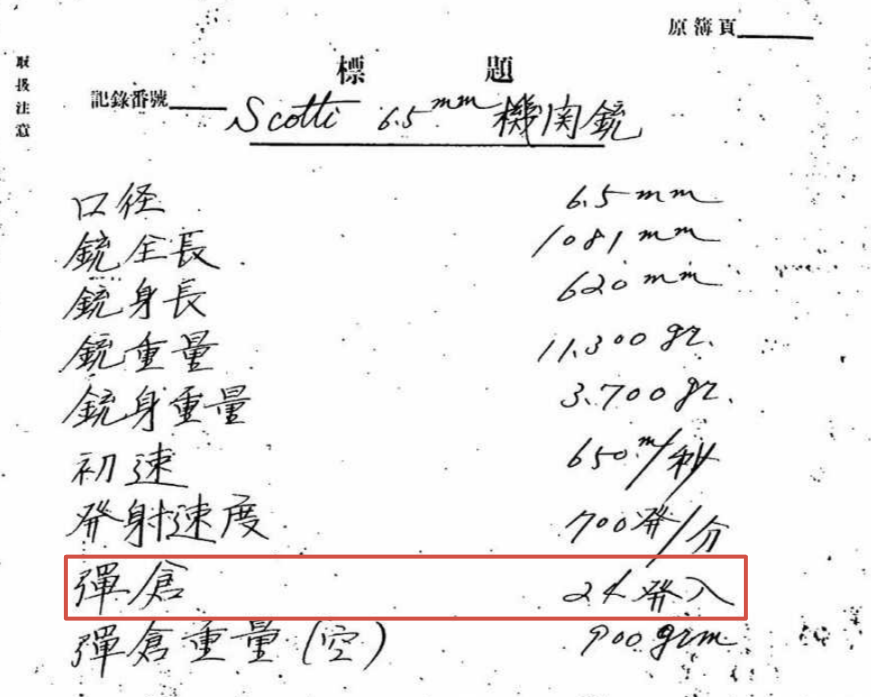 原簿頁
取扱注意
標題
記錄番號
Scotti 6.5mm 機関銃
口径 6.5mm
銃全長 1081mm
銃身長 620mm
銃重量 11,300gr.
銃身重量 3,700gr.
初速 650m/秒
発射速度 700発/分
彈倉 24発入
彈倉重量(空) 900grm